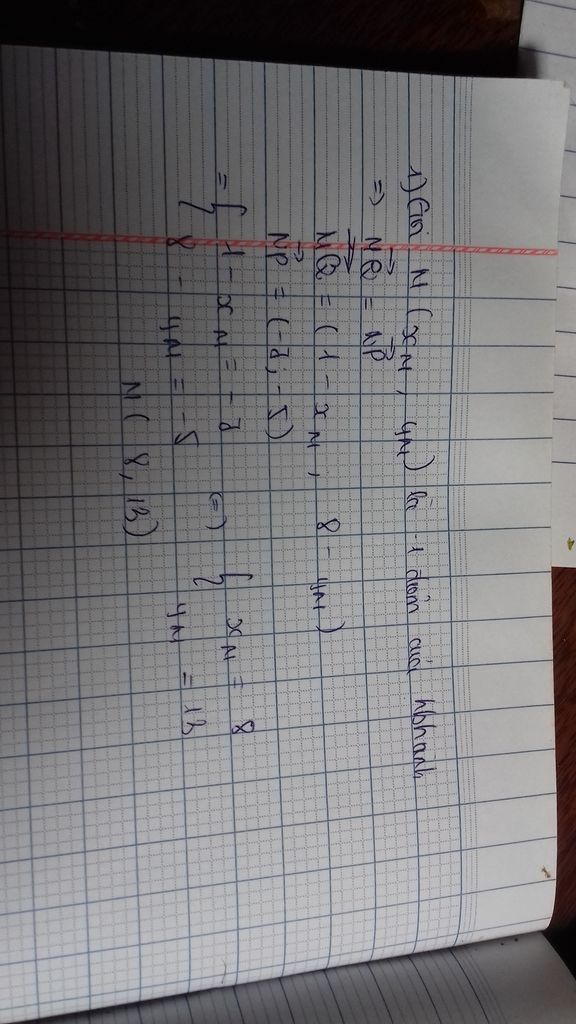 1) Gọi M (xM, yM) là 1 điểm của hbhành
=> MQ = NP
MQ = (1 - xM, 8 - yM)
NP = (-7; -5)
= { 1 - xM = -7 <=> { xM = 8
8 - yM = -5 yM = 13
M (8, 13)